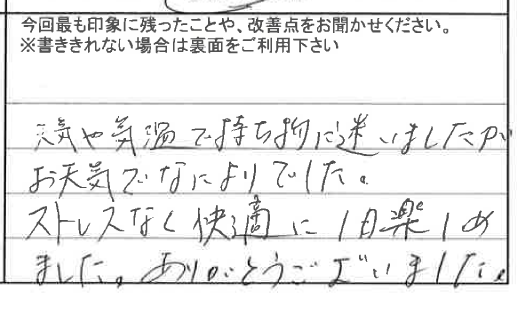 今回最も印象に残ったことや、改善点をお聞かせください。
※書ききれない場合は裏面をご利用下さい
天気や気温で持ち物に迷いましたが
お天気でなによりでした。
ストレスなく快適に1日楽しめ
ました。ありがとうございました。